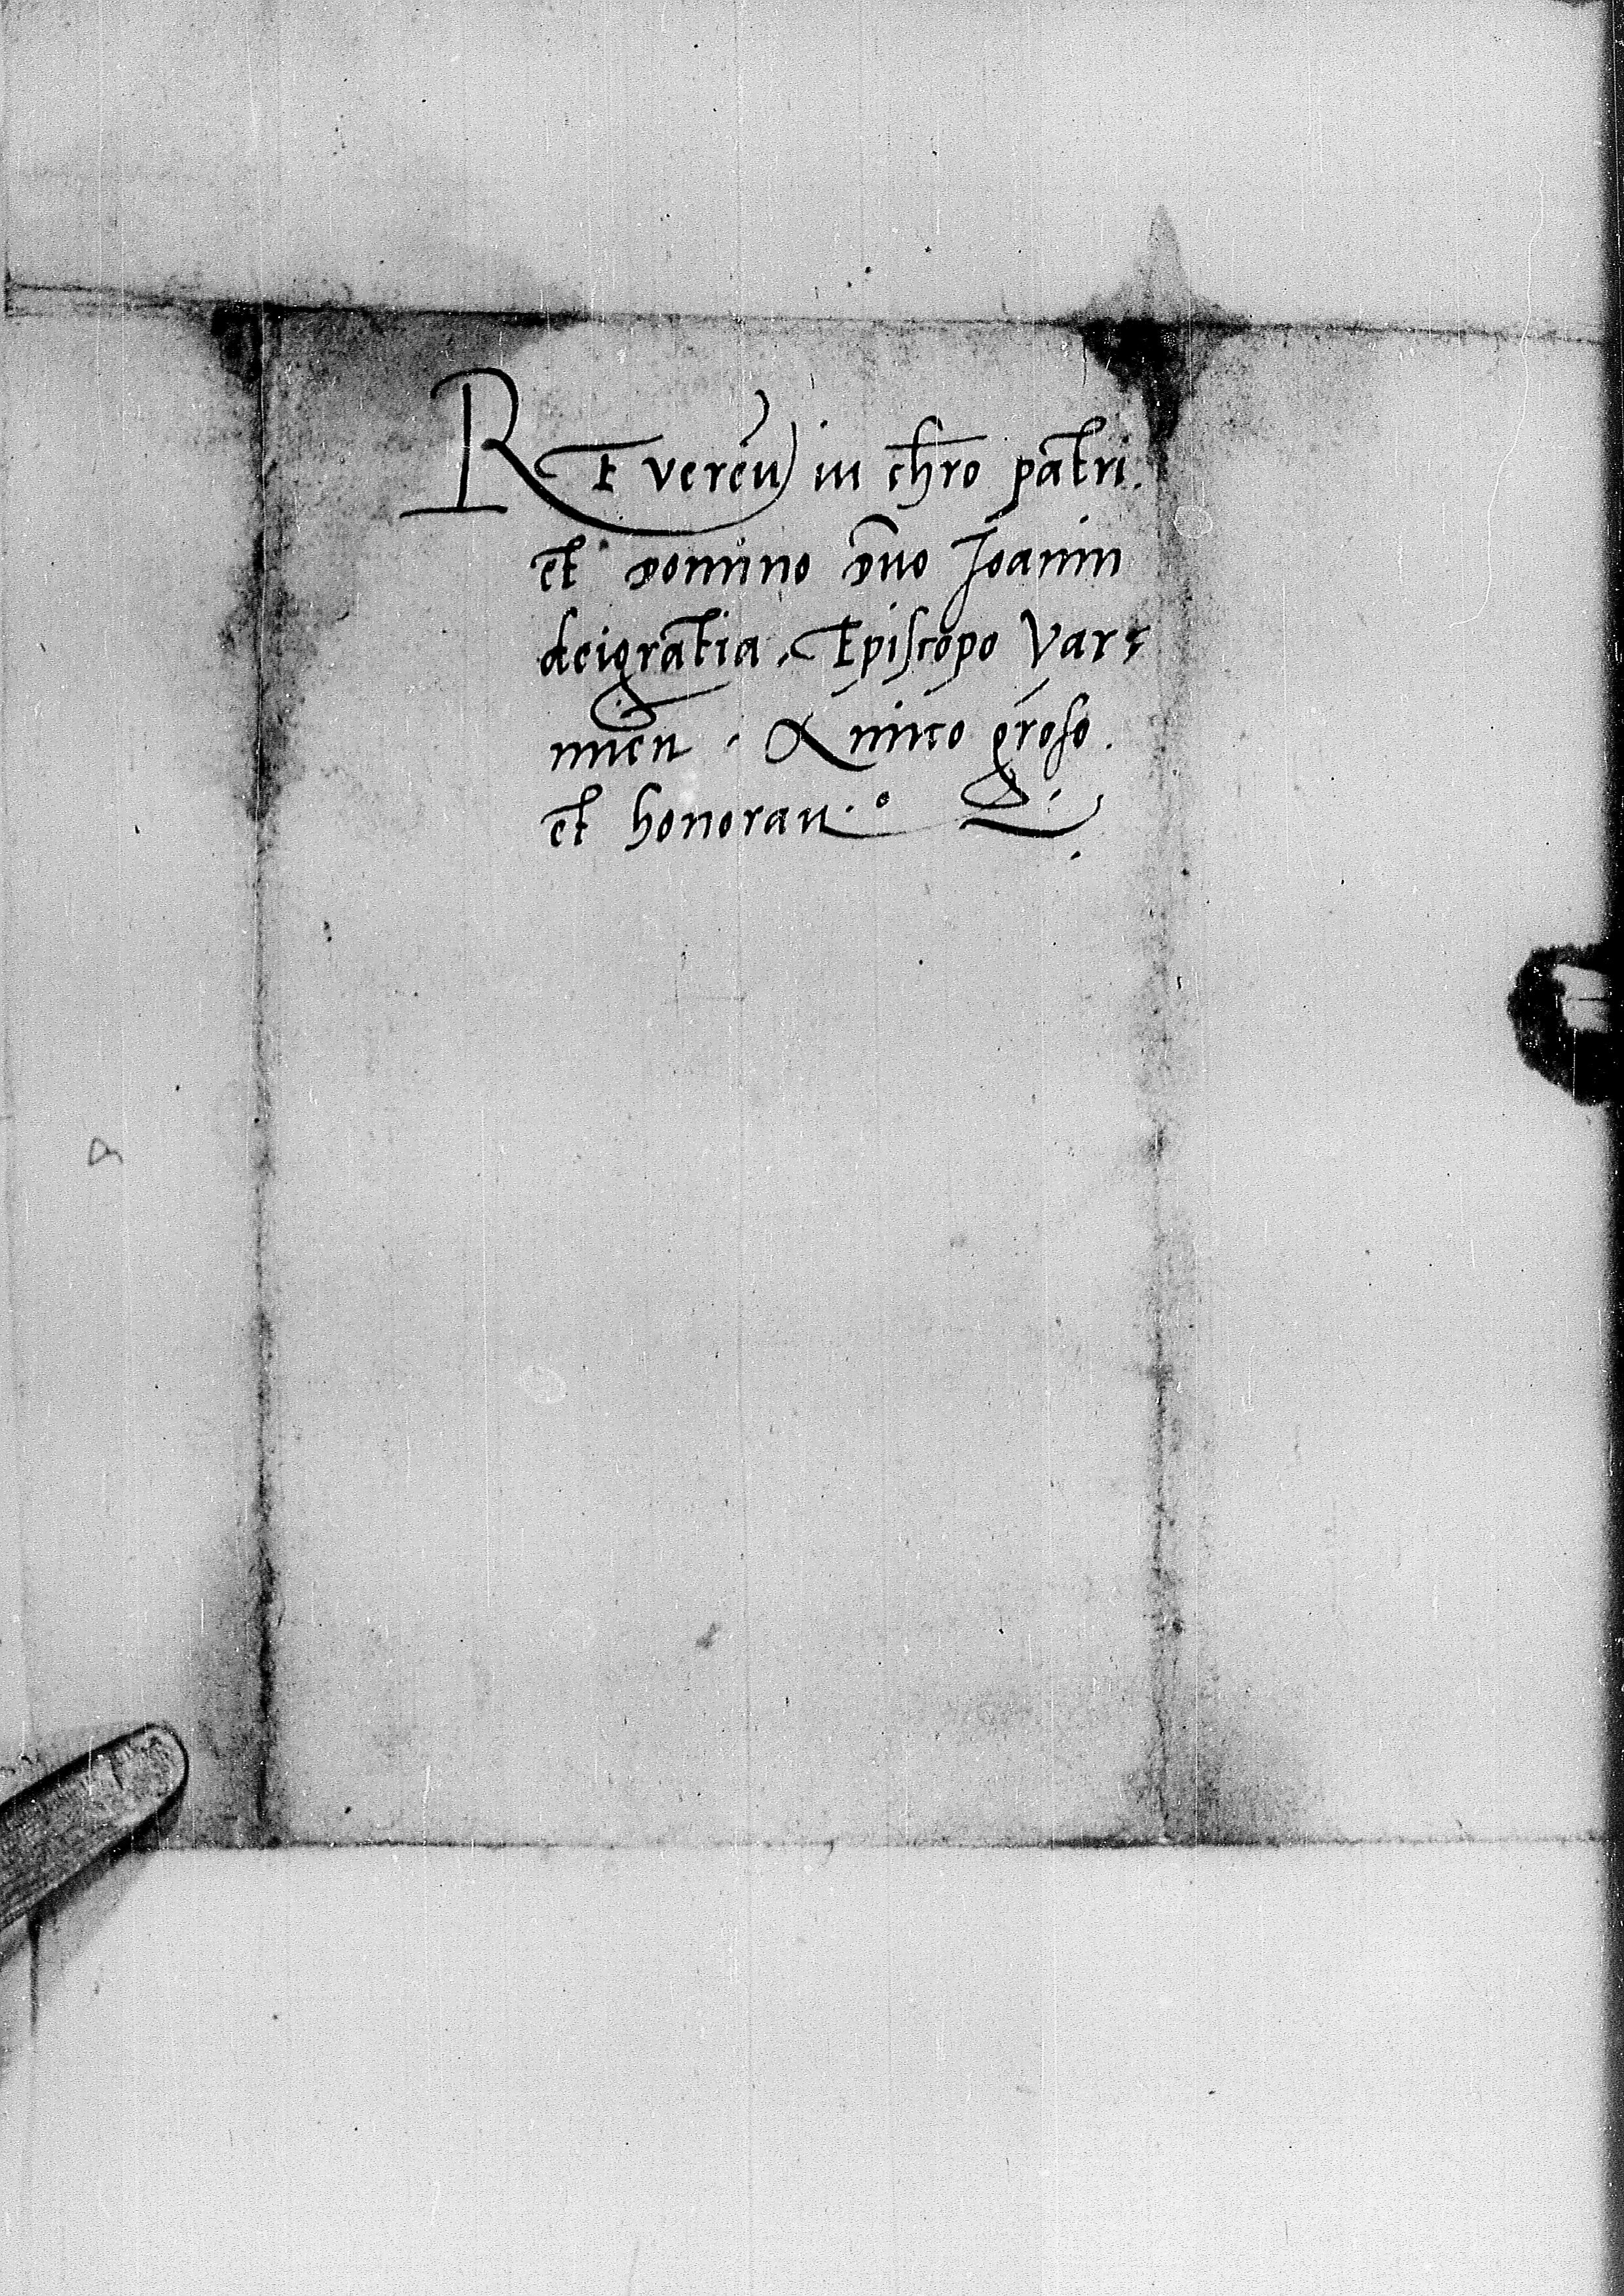 REveren in chro patri.
et domino dno Joanni
dei gratia. Episcopo Var
mien. Amico groso.
et honoran.